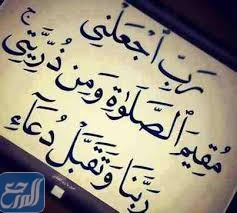 رَبِّ اجْعَلْنِي
مُقِيمَ الصَّلَاةِ وَمِن ذُرِّيَّتِي
رَبَّنَا وَتَقَبَّلْ دُعَاءِ
المرجع